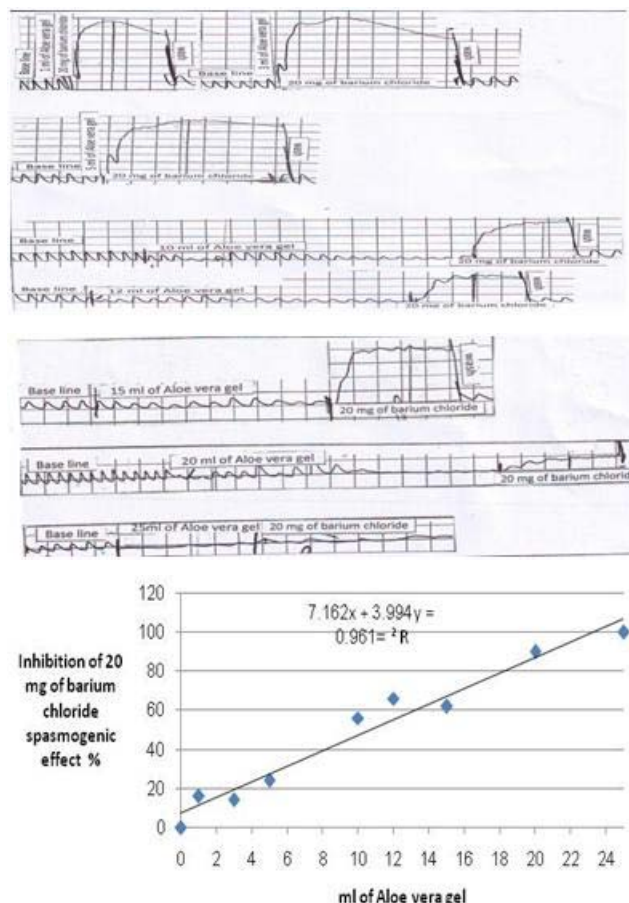 Base line
1 ml of Aloe vera gel
20 mg of barium chloride
wash
Base line
3 ml of Aloe vera gel
20 mg of barium chloride
wash
Base line
5 ml of Aloe vera gel
20 mg of barium chloride
wash
Base line
10 ml of Aloe vera gel
20 mg of barium chloride
wash
Base line
12 ml of Aloe vera gel
20 mg of barium chloride
wash
Base line
15 ml of Aloe vera gel
20 mg of barium chloride
wash
Base line
20 ml of Aloe vera gel
20 mg of barium chloride
Base line
25ml of Aloe vera gel
20 mg of barium chloride
120
100
80
60
40
20
0
7.162x + 3.994y =
0.961= ² R
Inhibition of 20
mg of barium
chloride
spasmogenic
effect %
0 2 4 6 8 10 12 14 16 18 20 22 24
ml of Aloe vera gel